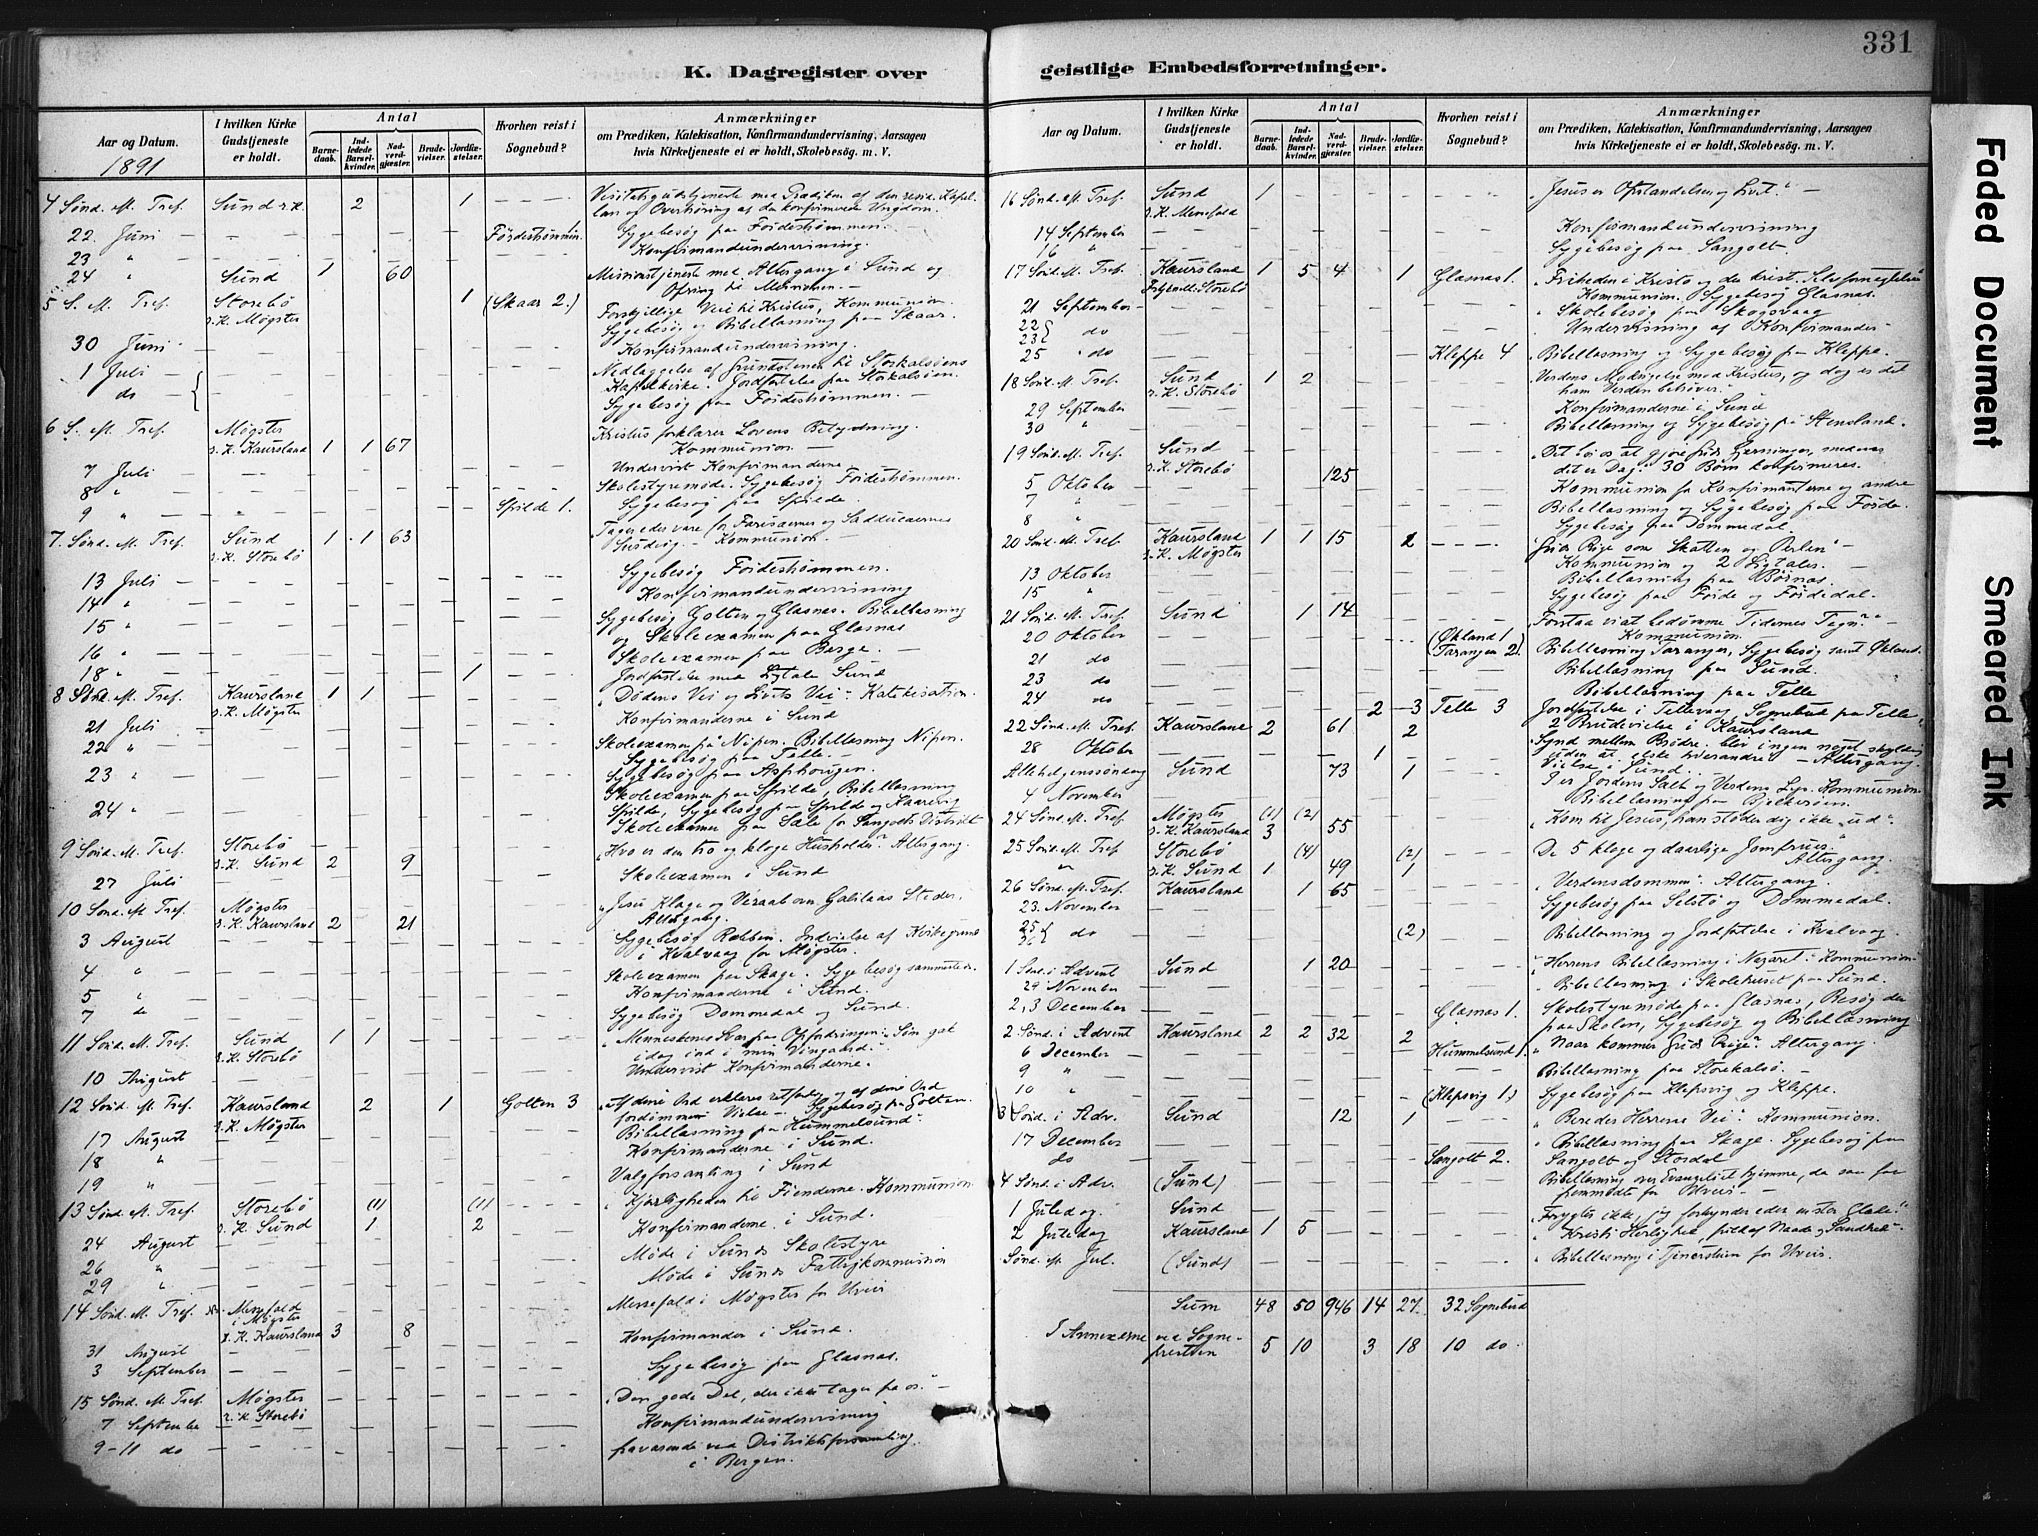 331
K. Dagregister over geistlige Embedsforretninger.
Aar og Datum.
1891
I hvilken Kirke Gudstjeneste er holdt.
Antal
Barnedaab.
Indledede Barselkvinder.
Nadverdgjæster.
Brudevielser.
Jordfæstelser.
Hvorhen reist i Sognebud?
Anmærkninger
om Prædiken, Katekisation, Konfirmandundervisning, Aarsagen
hvis Kirketjeneste ei er holdt, Skolebesøg. m. V.
4 Sønd. e. Tref. Sund r.K. 2 1 Visitatsgudstjeneste med Prædiken af den resid. Kapel-
lan og Overhøring af de konfirmerede Ungdom.
22. Juni Førdestrømmen. Sygebesøg paa Førdestrømmen.
23 " Konfirmandundervisning.
24 " Sund 1 60 Missionstjeneste med Altergang i Sund og
Ofring til Missionen.
5 S. e. Tref. Storebø 1 (Skaar 2.) Forskjellige Veie til Kristus, Kommunion.
r.K. Møgster Sygebesøg og Bibellæsning paa Skaar.
30 Juni Konfirmandundervisning.
1 Juli Nedlæggelse af Grundstenen til Storkalsøens
do Kapelkirke. Jordfæstelse paa Storkalsøen.
Sygebesøg paa Førdestrømmen.
6 S. e. Tref. Møgster Kristus forklarer Lovens Betydning.
r.K. Kaursland 1 1 67 Kommunion
7 Juli Undervist Konfirmanderne
8 " Skolestyremøde. Sygebesøg Førdestrømmen.
9 " Spilde 1. Sygebesøg paa Spilde.
7. Sønd. e. Tref. Sund 1 1 63 Tager eder vare for Farisæernes og Sadducæernes
r.K. Storebø Surdeig. Kommunion.
13 Juli Sygebesøg Førdestrømmen.
14 " Konfirmandundervisning
15 " Sygebesøg Golten og Glasnæs. Bibellæsning
og Skoleexamen paa Glasnæs
16 " Skoleexamen paa Berge.
18 " 1 Jordfæstelse med Ligtale Sund
8 Sønd. e. Tref. Kaursland 1 1 "Dødens Vei og Livets Vei". Katekisation.
r.K. Møgster
21 Juli Konfirmanderne i Sund
22 " Skoleexamen på Nipen. Bibellæsning Nipen.
Sygebesøg paa Telle
23 " Sygebesøg paa
Skoleexamen paa Spilde, Bibellæsning
24 " Spilde, Sygebesøg paa Spilde og
Skoleexamen paa Sæle for Sangolts Distrikt
9 Sønd. e. Tref. Storebø "Hvo er den tro og kloge Husholder". Altergang.
r.K. Sund 2 9
27 Juli Skoleexamen i Sund
10 Sønd. e. Tref. Møgster "Jesu Klage og Veraab over Galilæas Stæder,
r.K. Kaursland 2 21 Altergang.
3 August Sygebesøg Rabben. Indvielse af Kirkegrund
i Kvalvaag for Møgster.
4 " Skoleexamen paa Skage. Sygebesøg sammesteds.
5 " Konfirmanderne i Sund.
7 do Sygebesøg Dommedal og Sund
11 Sønd. e. Tref. Sund 1 1 "Menneskenes Svar paa Opfordringen: Søn gak
r.K. Storebø idag ind i min Vingaard.
10 August Undervist Konfirmanderne.
12 Sønd. e. Tref. Kaursland 2 1 Golten 3 "Af dine Ord erklæres retfærdig og af dine Ord
r.K. Møgster fordømmes" Vielse. Sygebesøg paa Golten.
17 August Bibellæsning paa Hummelsund.
18 " Konfirmanderne i Sund.
19 " Valgforsamling i Sund
13 Sønd. e. Tref. Storebø (1) (1) "Kjærligheden til Fienderne. Kommunion
r.K. Sund 1 2
24 August Konfirmanderne i Sund.
26 " Møde i Sunds Skolestyre
29 " Møde i Sunds Fattigkommission
14 Sønd. e. Tref. Messefald Messefald i Møgster for Uveir
i Møgster
r.K. Kaursland 3 8
31 August Konfirmander i Sund.
3 September Sygebesøg paa Glasnæs.
15 Sønd. e. Tref. Møgster "Den gode Del, der ikke tages fra os."
7 September r.K Storebø Konfirmandundervisning
9-11 do fraværende ved Distriktsforsamling
i Bergen.
Aar og Datum.
I hvilken Kirke Gudstjeneste er holdt.
Antal
Barnedaab.
Indledede Barselkvinder.
Nadverdgjæster.
Brudevielser.
Jordfæstelser.
Hvorhen reist i Sognebud?
Anmærkninger
om Prædiken, Katekisation, Konfirmandundervisning, Aarsagen
hvis Kirketjeneste ei er holdt, Skolebesøg. m. V.
16 Sønd. e. Tref. Sund 1 "Jesus er Opstandelsen og Livet."
r.K. Messefald
14 September Konfirmandundervisning
16 " Sygebesøg paa Sangolt.
17 Sønd. e. Tref. Kaursland 1 5 4 1 Glasnæs 1. "Friheden i Kristo og den krist. Selvfornegtelse"
Storebø Kommunion. Sygebesøg Glasnæs.
21 September Skolebesøg paa Skogsvaag
22 23 do Undervisning af Konfirmander
25 do Kleppe 4 Bibellæsning og Sygebesøg paa Kleppe.
18 Sønd. e. Tref. Sund 1 2 "Verdens Misnøielse med Kristus, og dog er det
r.K. Storebø ham Verden behøver."
29 September Konfirmanderne i Sund
30 " Bibellæsning og Sygebesøg på Stensland.
19 Sønd. e. Tref. Sund "Det bør os at gjøre Guds Gjerninger, medens
r.K. Storebø det er Dag." 30 Børn konfirmeres.
5 Oktober 125 Kommunion for Konfirmanterne og andre
7 " Bibellæsning og Sygebesøg paa Førde.
8 " Sygebesøg paa Dommedal.
20 Sønd. e. Tref. Kaursland 1 1 15 2 "Guds Rige som Skatten og Perlen"
r.K. Møgster Kommunion og 2 Ligtaler.
13 Oktober Bibellæsning paa Børnæs.
15 " Sygebesøg paa Førde og Førdedal.
21 Sønd. e. Tref. Sund 1 14 "Forstaa vi at bedømme Tidernes Tegn?"
20 Oktober (Økland 1 Kommunion
21 do Tarangen 2). Bibellæsning Taranger, Sygebesøg samt Økland.
23 do Bibellæsning paa Sund.
24 do Bibellæsning paa Telle
2 3 Telle 3 Jordfæstelse i Tellevaag, Sognebud paa Telle
22 Sønd. e. Tref. Kaursland 2 61 2 2 Brudevielse i Kaursland
28 Oktober 1 "Synd mellem Brødre. bliv ingen noget skyldig
uden at elske hverandre — Altergang.
Allehelgenssøndag Sund 73 1 Vielse i Sund.
4 November "I er Jordens Salt og Verdens Lys. Kommunion
Bibellæsning paa Bjelkerøen.
24 Sønd. e. Tref. Møgster (1) (2) "Kom til Jesus, han støder dig ikke ud".
r.K. Kaursland 3 55
25 Sønd. e. Tref Storebø (4) (2) De 5 kloge og daarlige Jomfruer.
" r.K. Sund 1 49 1 Altergang
26 Sønd. e. Tref. Kaursland 1 65 "Verdensdommen". Altergang.
23. November Sygebesøg paa Selstø og Dommedal.
25 26 do (2) Bibellæsning og Jordfæstelse i Kvalvaag.
1 Sønd. i Advent Sund 1 20 "Herrens Bibellæsning i Nazaret". Kommunion
29 November "Bibellæsning i Skolehuset paa Sund.
2, 3 December Glasnæs 1. Skolestyremøde paa Glasnæs, Besøg der
paa Skolen, Sygebesøg og Bibellæsning
2. Sønd. i Advent Kaursland 2 2 32 2 "Naar kommer Guds Rige". Altergang.
6 December Hummelsund 1.
9 " Bibellæsning paa Storekalsø.
10 " (Klepsvig 1.) Sygebesøg paa Klepsvig og Kleppe.
3 Sønd. i Adv. Sund 12 1 "Bereder Herrens Vei". Kommunion.
17 December Bibellæsning paa Skage. Sygebesøg paa
do Sangolt 2. Sangolt og Stordal
4 Sønd. i Adv. (Sund) Bibellæsning over Evangeliet hjemme, da saa faa
fremmødte for Uveir.
1 Juledag. Sund "Frygter ikke, jeg forkynder eder en stor Glæde!"
2 Juledag Kaursland 1 5 "Kristi Herlighed, fuld af Naade og Sandhed"
Sønd. e. Jul. (Sund) "Bibellæsning i Tjenerstuen for Uveir.
Sum 48 50 946 14 27. 32 Sognebud
I Annexerne ved Sogne-
presten 5 10 3 18 10 do.
Faded Document
Smeared Ink